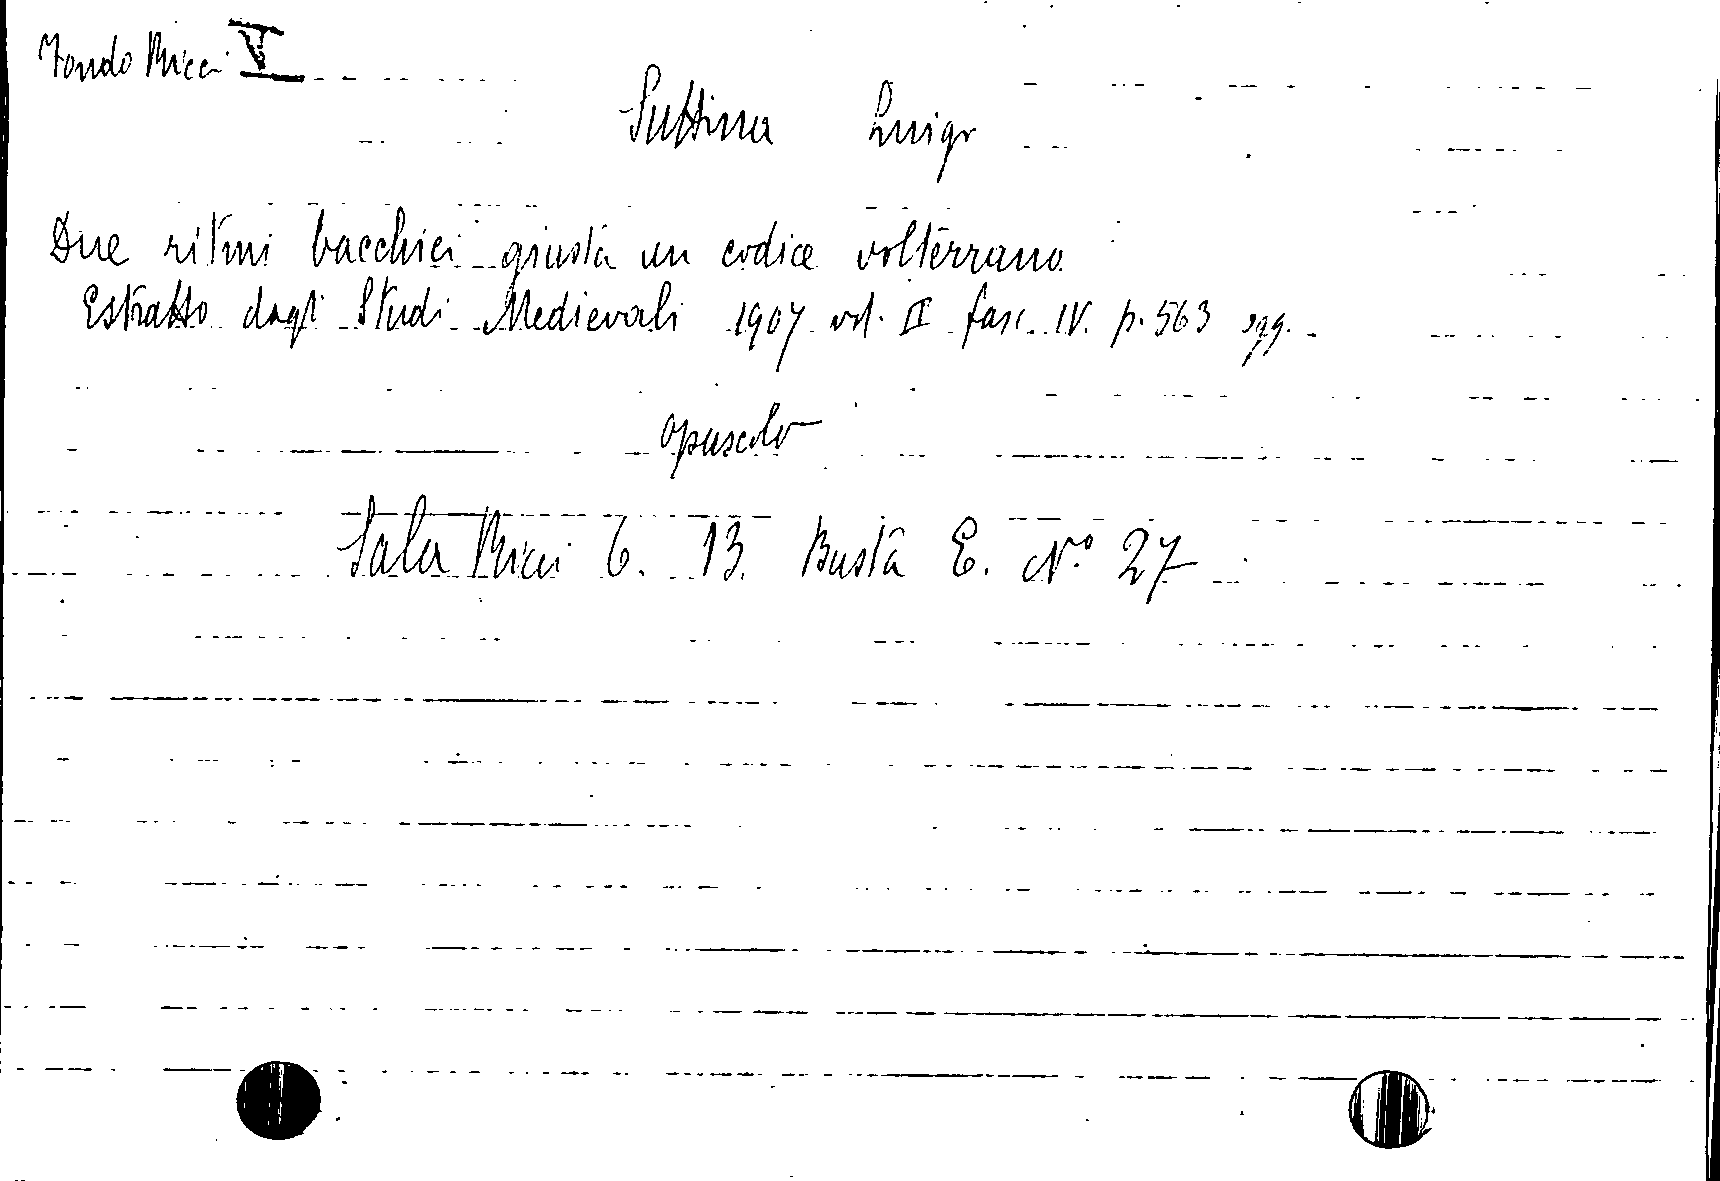 Fondo Ricci V
Suttina Luigi
Due ritmi bacchici giusta un codice volterrano
Estratto dagli Studi Medievali 1907 vol. II fasc. IV. p. 563 sgg.
opuscolo
Sala Ricci 6. 13. Busta E. N.º 27